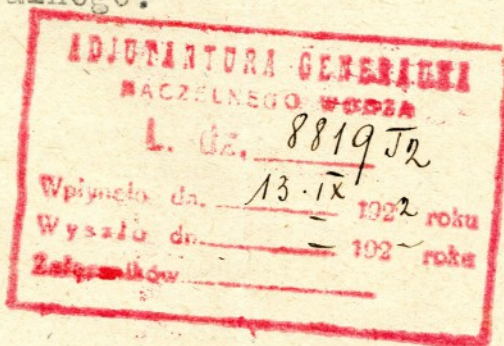 ADJUTANTURA GENERALNA
NACZELNEGO WODZA
L. dz. 8819 T2
Wpłynęło dn. 13·IX 1922 roku
Wyszło dn. – 192– roku
Załączników